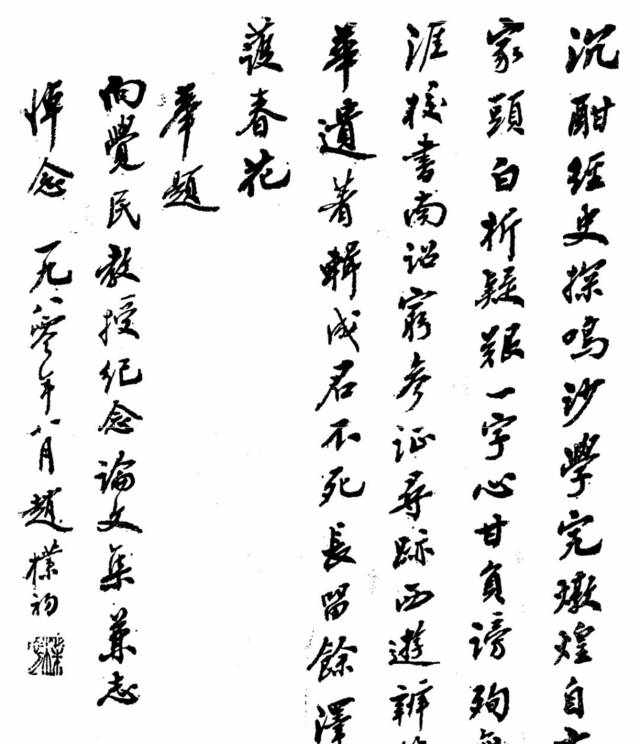 沉酣經史探鳴沙學究燉煌自
家頭白析疑艱一字心甘負謗殉
涯校書南詔窮參证尋跡西遊辨
華遺著輯成君不死長留餘澤
護春花
奉題
向覺民教授纪念論文集兼志
悼念 一九八零年八月 趙樸初